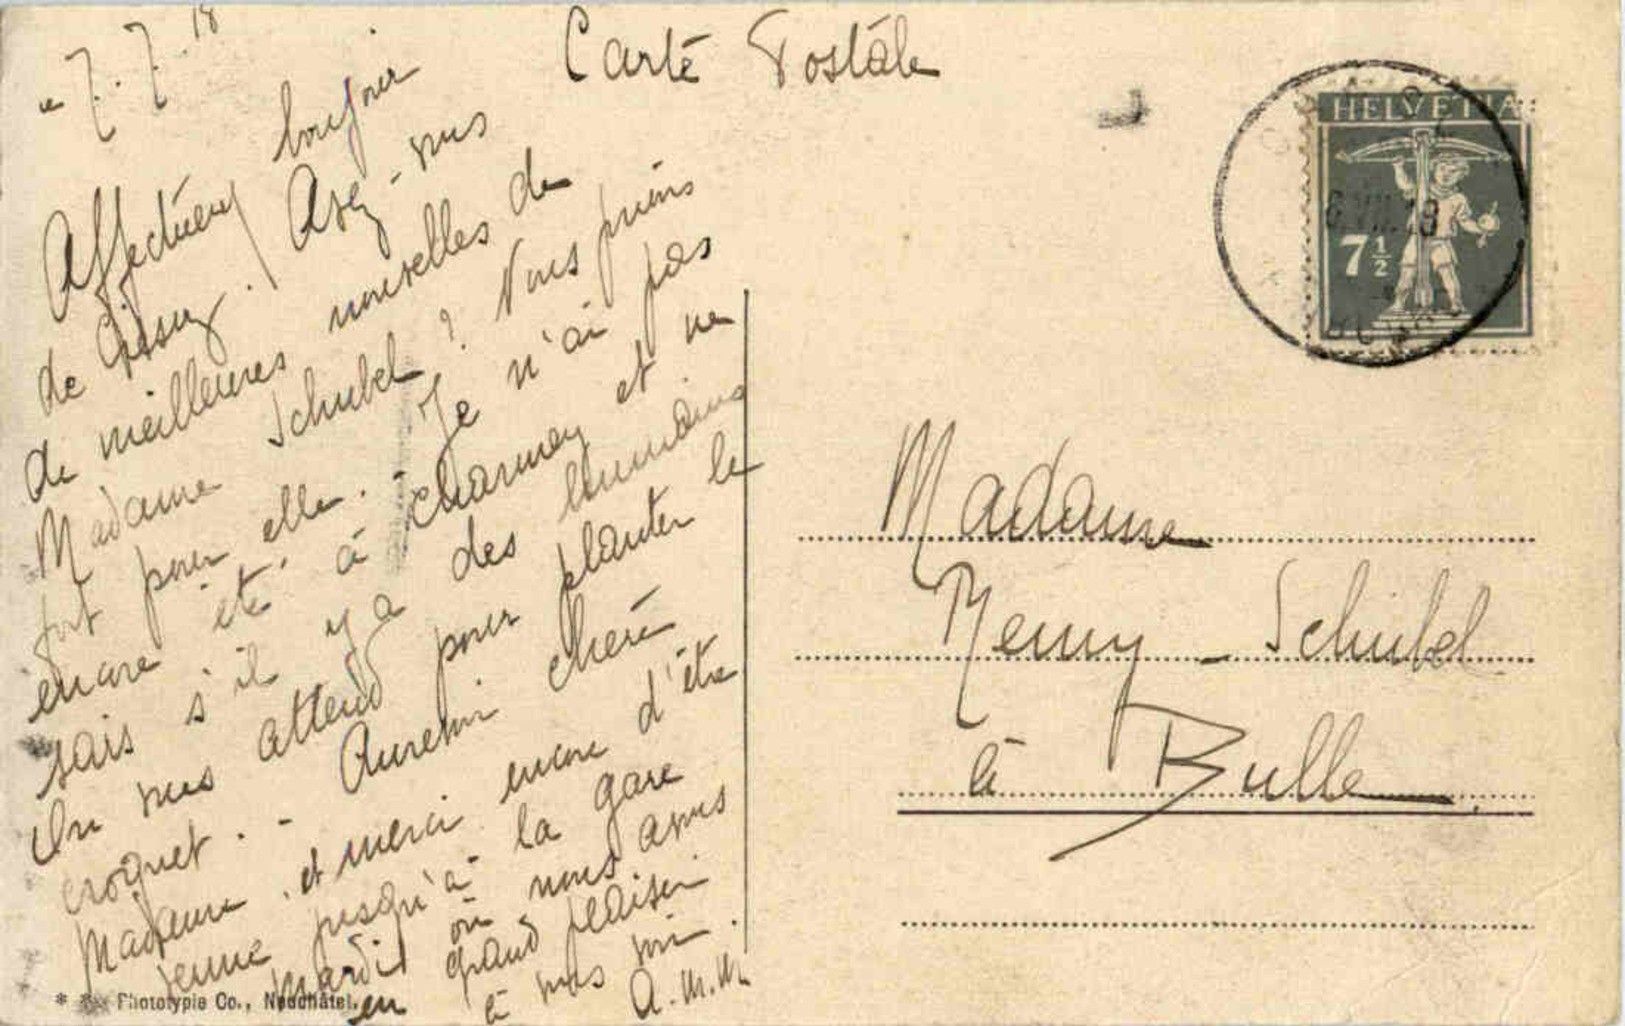 Carte Postale
le 7.7.18
Affectueux bonjour
de Crésuz. Avez-vous
de meilleures nouvelles de
Madame Schubel? Nous prions
fort pour elle. - Je n'ai pas
encore été à Charmey et ne
sais s'il y a des
On vous attend pour planter le
croquet. - Aurevoir chère
Madame, et merci encore d'être
venue jusqu'à la gare
mardi où nous avons
en grand plaisir
à vous voir.
A.M.M.
* Phototypie Co., Neuchâtel.
HELVETIA
7 1/2
6.VII.18
Madame
Remy-Schubel
à Bulle